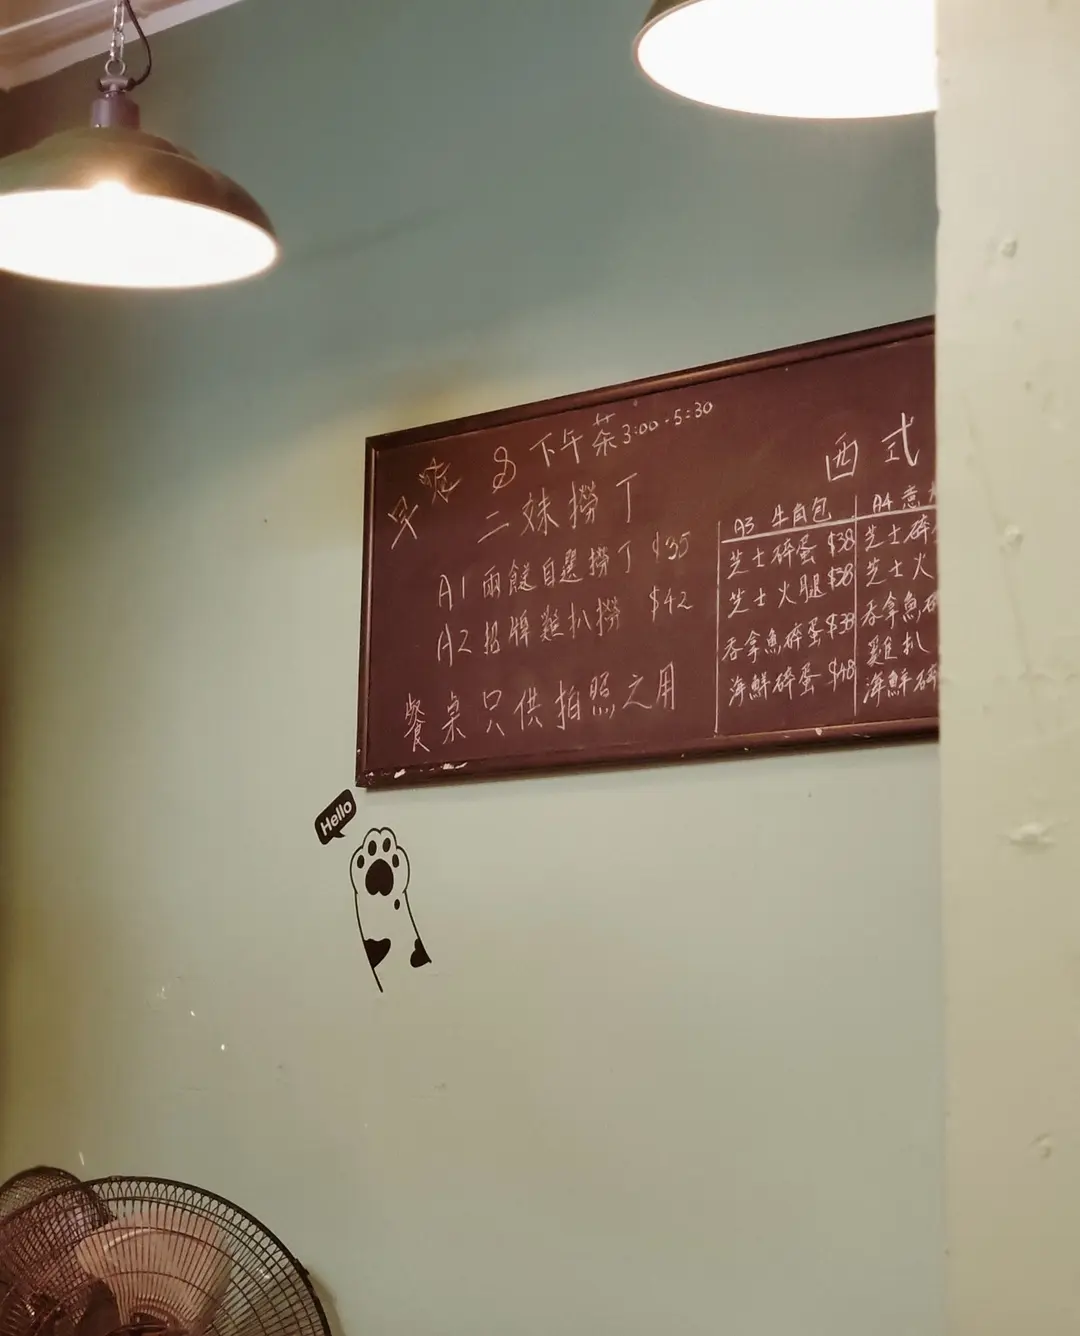 早晨 & 下午茶 3:00-5:30
二妹撈丁
A1 兩餸自選撈丁 $35
A2 招牌雞扒撈 $42
餐桌只供拍照之用
西式
A3 牛角包
芝士碎蛋 $38
芝士火腿 $38
吞拿魚碎蛋 $38
海鮮碎蛋 $48
A4 意
芝士碎
芝士火
吞拿魚碎
雞扒
海鮮碎
Hello